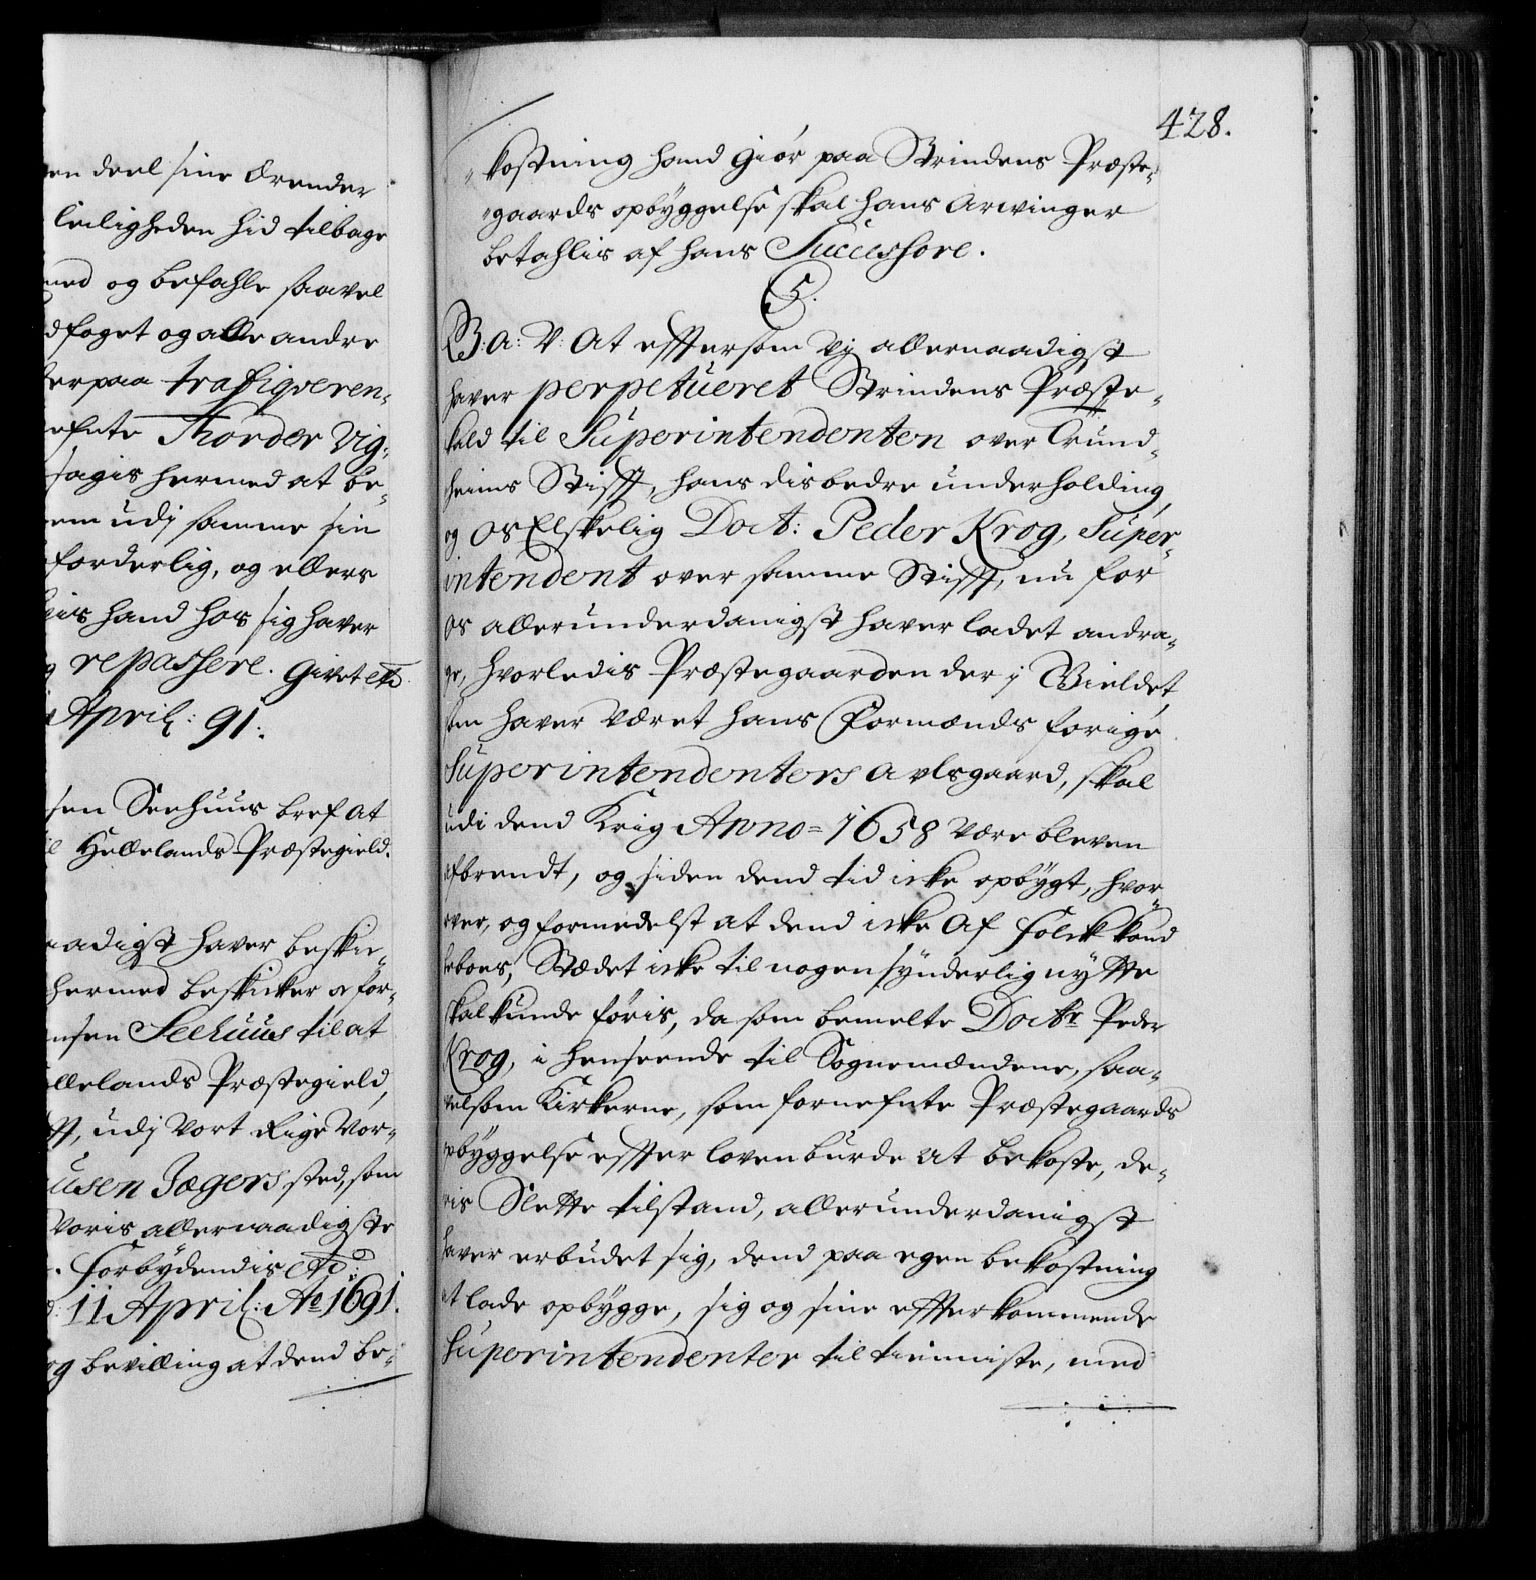 en deel sine Ærender
leiligheden hid tilbage
med og befahle saavel
dfoget og alle andre
erpaa trafiqveren-
efnte Thorder Vig-
sagis hermed at be-
em udj samme sin
forderlig, og ellers
his hand hos sig haver
g repassere. Givet etc
April: 91:
sen Seehuus bref at
il Hellelands Præstegield.
aadigst haver beskic-
hermed beskicker og for-
nsen Seehuus til at
ellelands Præstegield,
ft, udj Vort Rige Nor-
usen Jægers sted, som
Voris allernaadigste
. Forbydendis etc:
d: 11 April: Ao 1691.
og bevilling at dend be-
428.
"kostning hand giør paa Strindens Præste-
"gaards opbyggelse skal hans Arwinger
betahlis af hans Successore.
5.
G: A: V: At efftersom Vj allernaadigst
haver perpetueret Strindens Præste-
kald til Superintendenten over Trund-
heims Stifft, hans disbedre underholding,
og Os Elskelig Doct: Peder Krog, Super-
intendent over samme Stifft, nu for
os allerunderdanigst haver ladet andra-
ge, hvorledis Præstegaarden der j Gieldet,
som haver været hans Formænds forige
Superintendenters Avlsgaard, skal
udi dend Krig Anno = 1658 være bleven
afbrendt, og siden dend tid icke opbygt, hvor-
over, og formedelst at dend icke af Folck kand
beboes, Stædet icke til nogen synderlig nytte
skal kunde føris, da som bemelte Doctr Peder
Krog, i henseende til Sognemændene, saa-
velsom Kirkerne, som fornefnte Præstegaards
opbyggelse effter loven burde at bekoste, de-
ris Slette tilstand, allerunderdanigst
haver erbudet sig, dend paa egen bekostning
at lade opbygge, sig og sine effterkommende
Superintendenter til tienniste, med